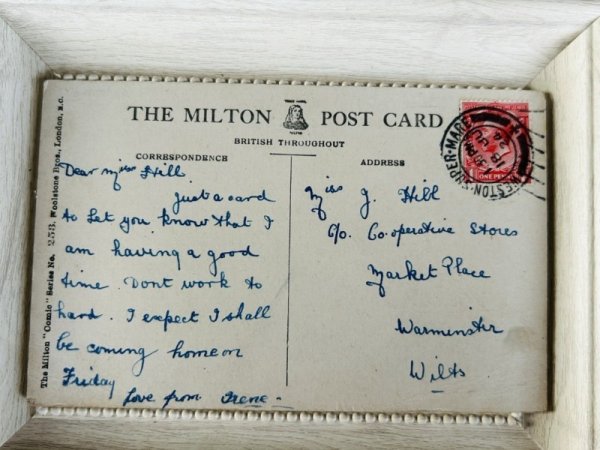 THE MILTON POST CARD
BRITISH THROUGHOUT
CORRESPONDENCE
Dear Miss Hill
Just a card
to let you know that I
am having a good
time. Dont work to
hard. I expect I shall
be coming home on
Friday
Love from Irene -
ADDRESS
Miss J. Hill
C/o. Co-operative Stores
Market Place
Warminster
Wilts
The Milton "Comic" Series No. 253. Woolstone Bros., London, E.C.
WESTON-SUPER-MARE
18 JU
24
ONE PENNY